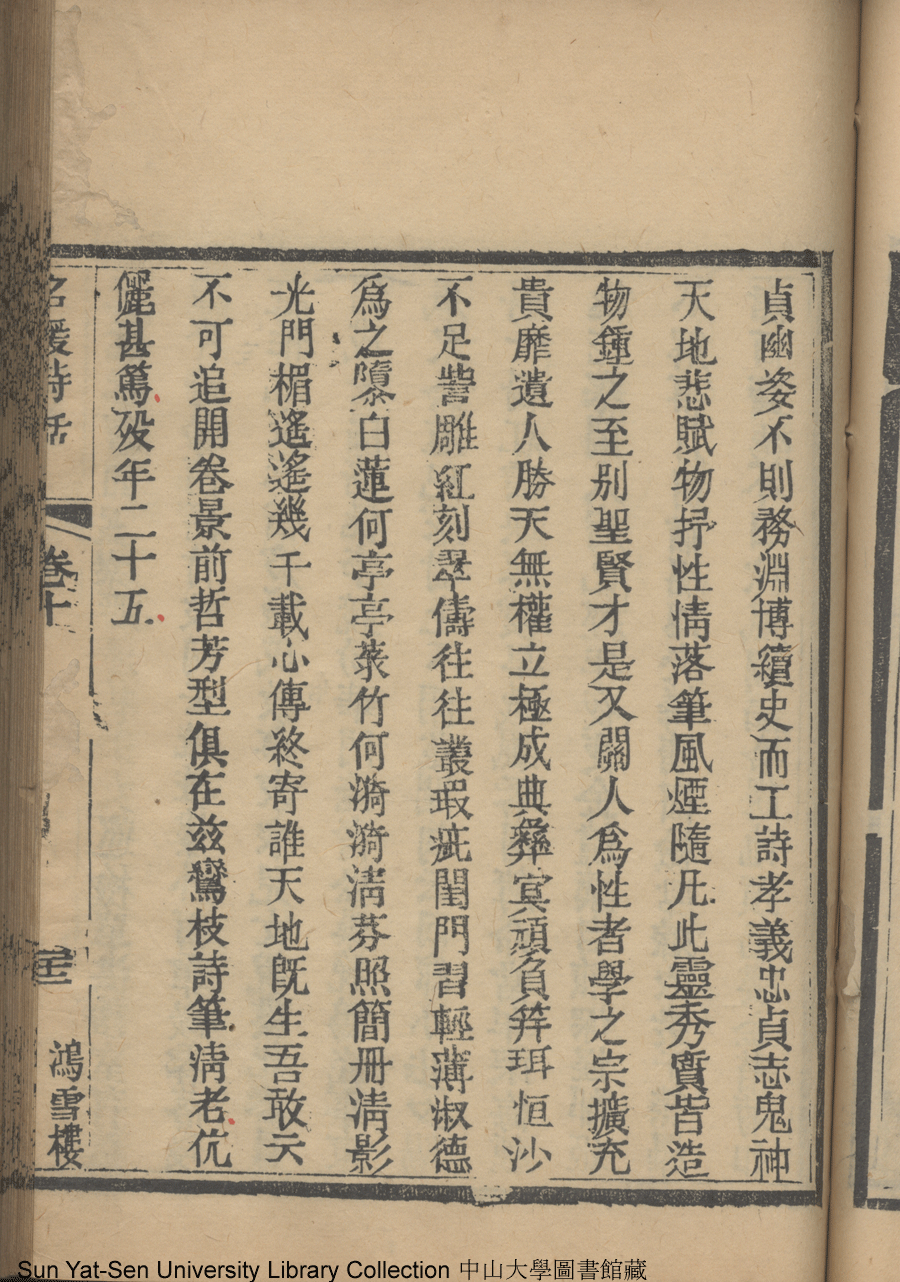 貞幽姿不則務淵博續史而工詩孝義忠貞志鬼神
天地悲賦物抒性情落筆風煙隨凡此靈秀質皆造
物鍾之至别聖賢才是又關人爲性者學之宗擴充
貴靡遺人勝天無權立極成典彝冥頑負笄珥恒沙
不足訾雕紅刻翠儔往往叢瑕疵閨門習輕薄淑德
爲之隳白蓮何亭亭菉竹何漪漪淸芬照簡冊淸影
光門楣遙遙幾千載心傳終寄誰天地旣生吾敢云
不可追開卷景前哲芳型俱在兹鸞枝詩筆淸老伉
儷甚篤殁年二十五
名媛詩話
卷十
鴻雪樓
Sun Yat-Sen University Library Collection 中山大學圖書館藏